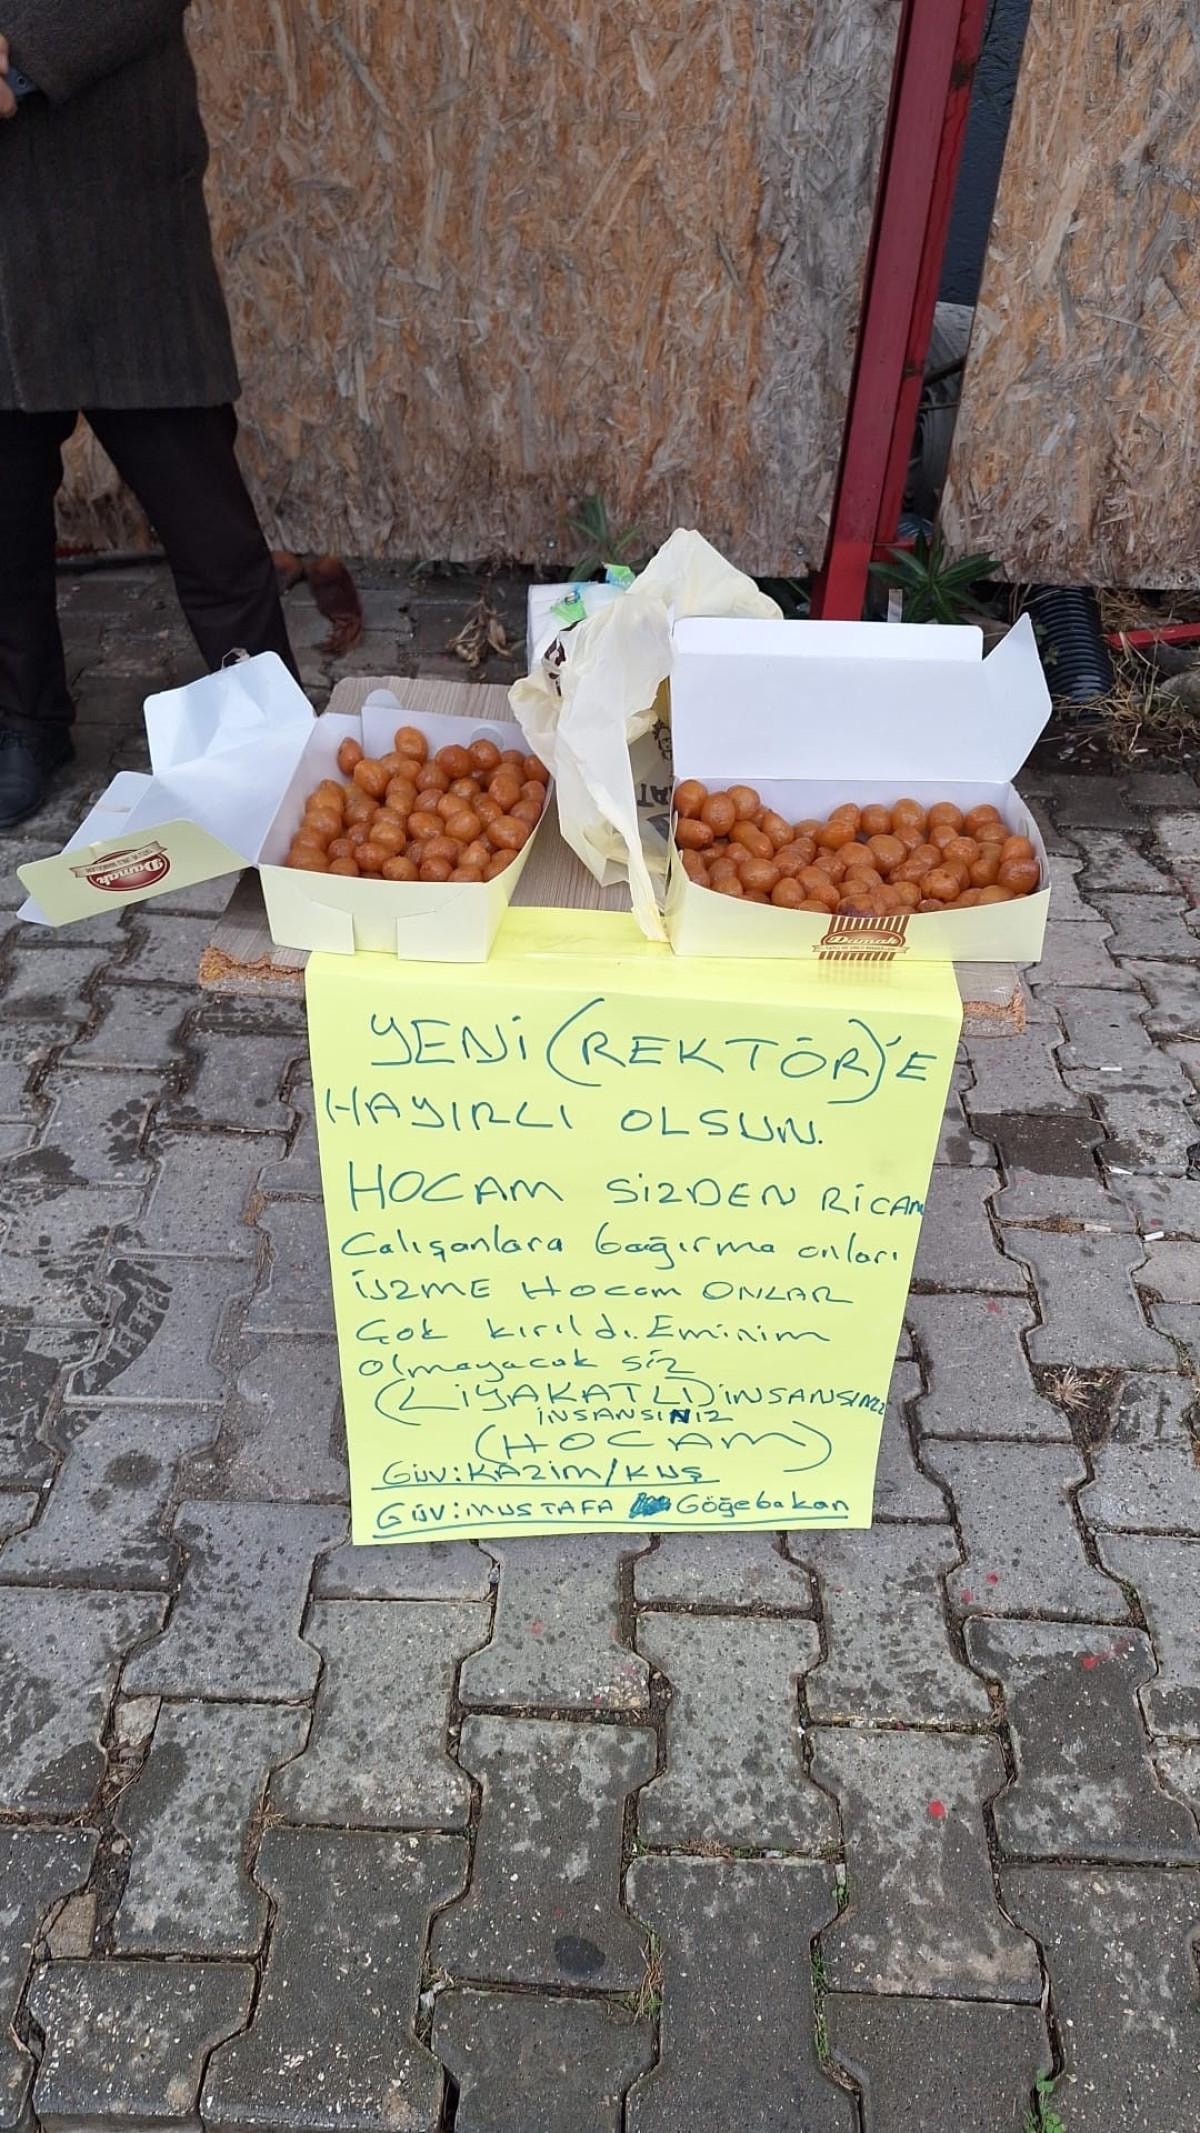 Damak
Damak
YENİ (REKTÖR)'E
HAYIRLI OLSUN.
HOCAM SİZDEN RİCAM
Çalışanlara bağırma onları
İÜZME HOCam ONLAR
Çok kırıldı. Eminim
olmayacak siz
(LİYAKATLI) İNSANSINIZ
İNSANSINIZ
(HOCAM)
GÜV: KAZIM/KUŞ
GÜV: MUSTAFA Göğebakan